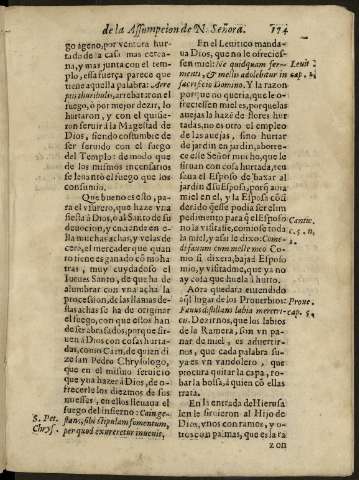 de la Assumpcion de N. Señora. 174
go ageno, por ventura hur-
tado de la casa mas cerca-
na, y mas junta con el tem-
plo, essa fuerça parece que
tiene aquella palabra: Arre
ptis thuribulis, arrebataron el
fuego, ò por mejor dezir, lo
hurtaron, y con el quisie-
ron seruir à la Magestad de
Dios, siendo costumbre de
ser seruido con el fuego
del Templo: de modo que
de los mismos incensarios
se leuantò el fuego que los
consumio.
Que bueno es esto, pa-
ra el vsurero, que haze vna
fiesta à Dios, ò al Santo de su
deuocion, y enciende en e-
lla muchas achas, y velas de
cera, el mercader que quan
to tiene es ganado cõ moha
tras, muy cuydadoso el
Iueues Santo, de que ha de
alumbrar con vna acha la
procession, de las llamas des-
tas achas se ha de originar
el fuego, con que ellos han
de ser abrasados, porque sir-
uen à Dios con cosas hurta-
das, como Cain, de quien di
ze san Pedro Chrysologo,
que en el mismo seruicio
que yua hazer à Dios, de o-
frecerle los diezmos de sus
miesses, en ellos lleuaua el
fuego del infierno: Cain ge-
stans, sibi stipulam fomentum,
per quod exureretur inuenit.
S. Pet.
Chrys.
En el Leuitico manda-
ua Dios, que no le ofrecies-
sen miel: Ne quidquam fer-
menti, & mellis adolebitur in
sacrificio Domino. Y la razon
porque no queria, que le o-
freciessen miel es, porque las
auejas la hazẽ de flores hur
tadas, no es otro el empleo
de las auejas, sino hurtar
de jardin en jardin, aborre-
ce este Señor mucho, que le
siruan con cosa hurtada, en
traua el Esposo de baxar al
jardin d̃ su Esposa, porq̃ auia
miel en el, y la Esposa cõsi
derãdo q̃ esse podia ser elim
pedimento para q̃ el Esposo
no la visitasse, comiose toda
la miel, y assi le dixo: Come-
di fauum cum melle meo. Co-
mo si dixera, baxad Esposo
mio, y visitadme, que ya no
ay cosa que huela à hurto.
Aora quedara entendido
aq̃l lugar de los Prouerbios:
Fauus distillans labia meretri-
cis. Dezirnos, que los labios
de la Ramera, son vn pa-
nar de miel, es aduertir-
nos, que cada palabra su-
ya es vn vandolero, que
procura quitar la capa, ro-
bar la bolsa, à quien cõ ellas
trata.
En la entrada de Hierusa
len le siruieron al Hijo de
Dios, vnos con ramos, y o-
tros con palmas, que essa ra
zon
Leuit
cap.
Cantic.
c. 5. n.
1.
Proue.
cap. 5.